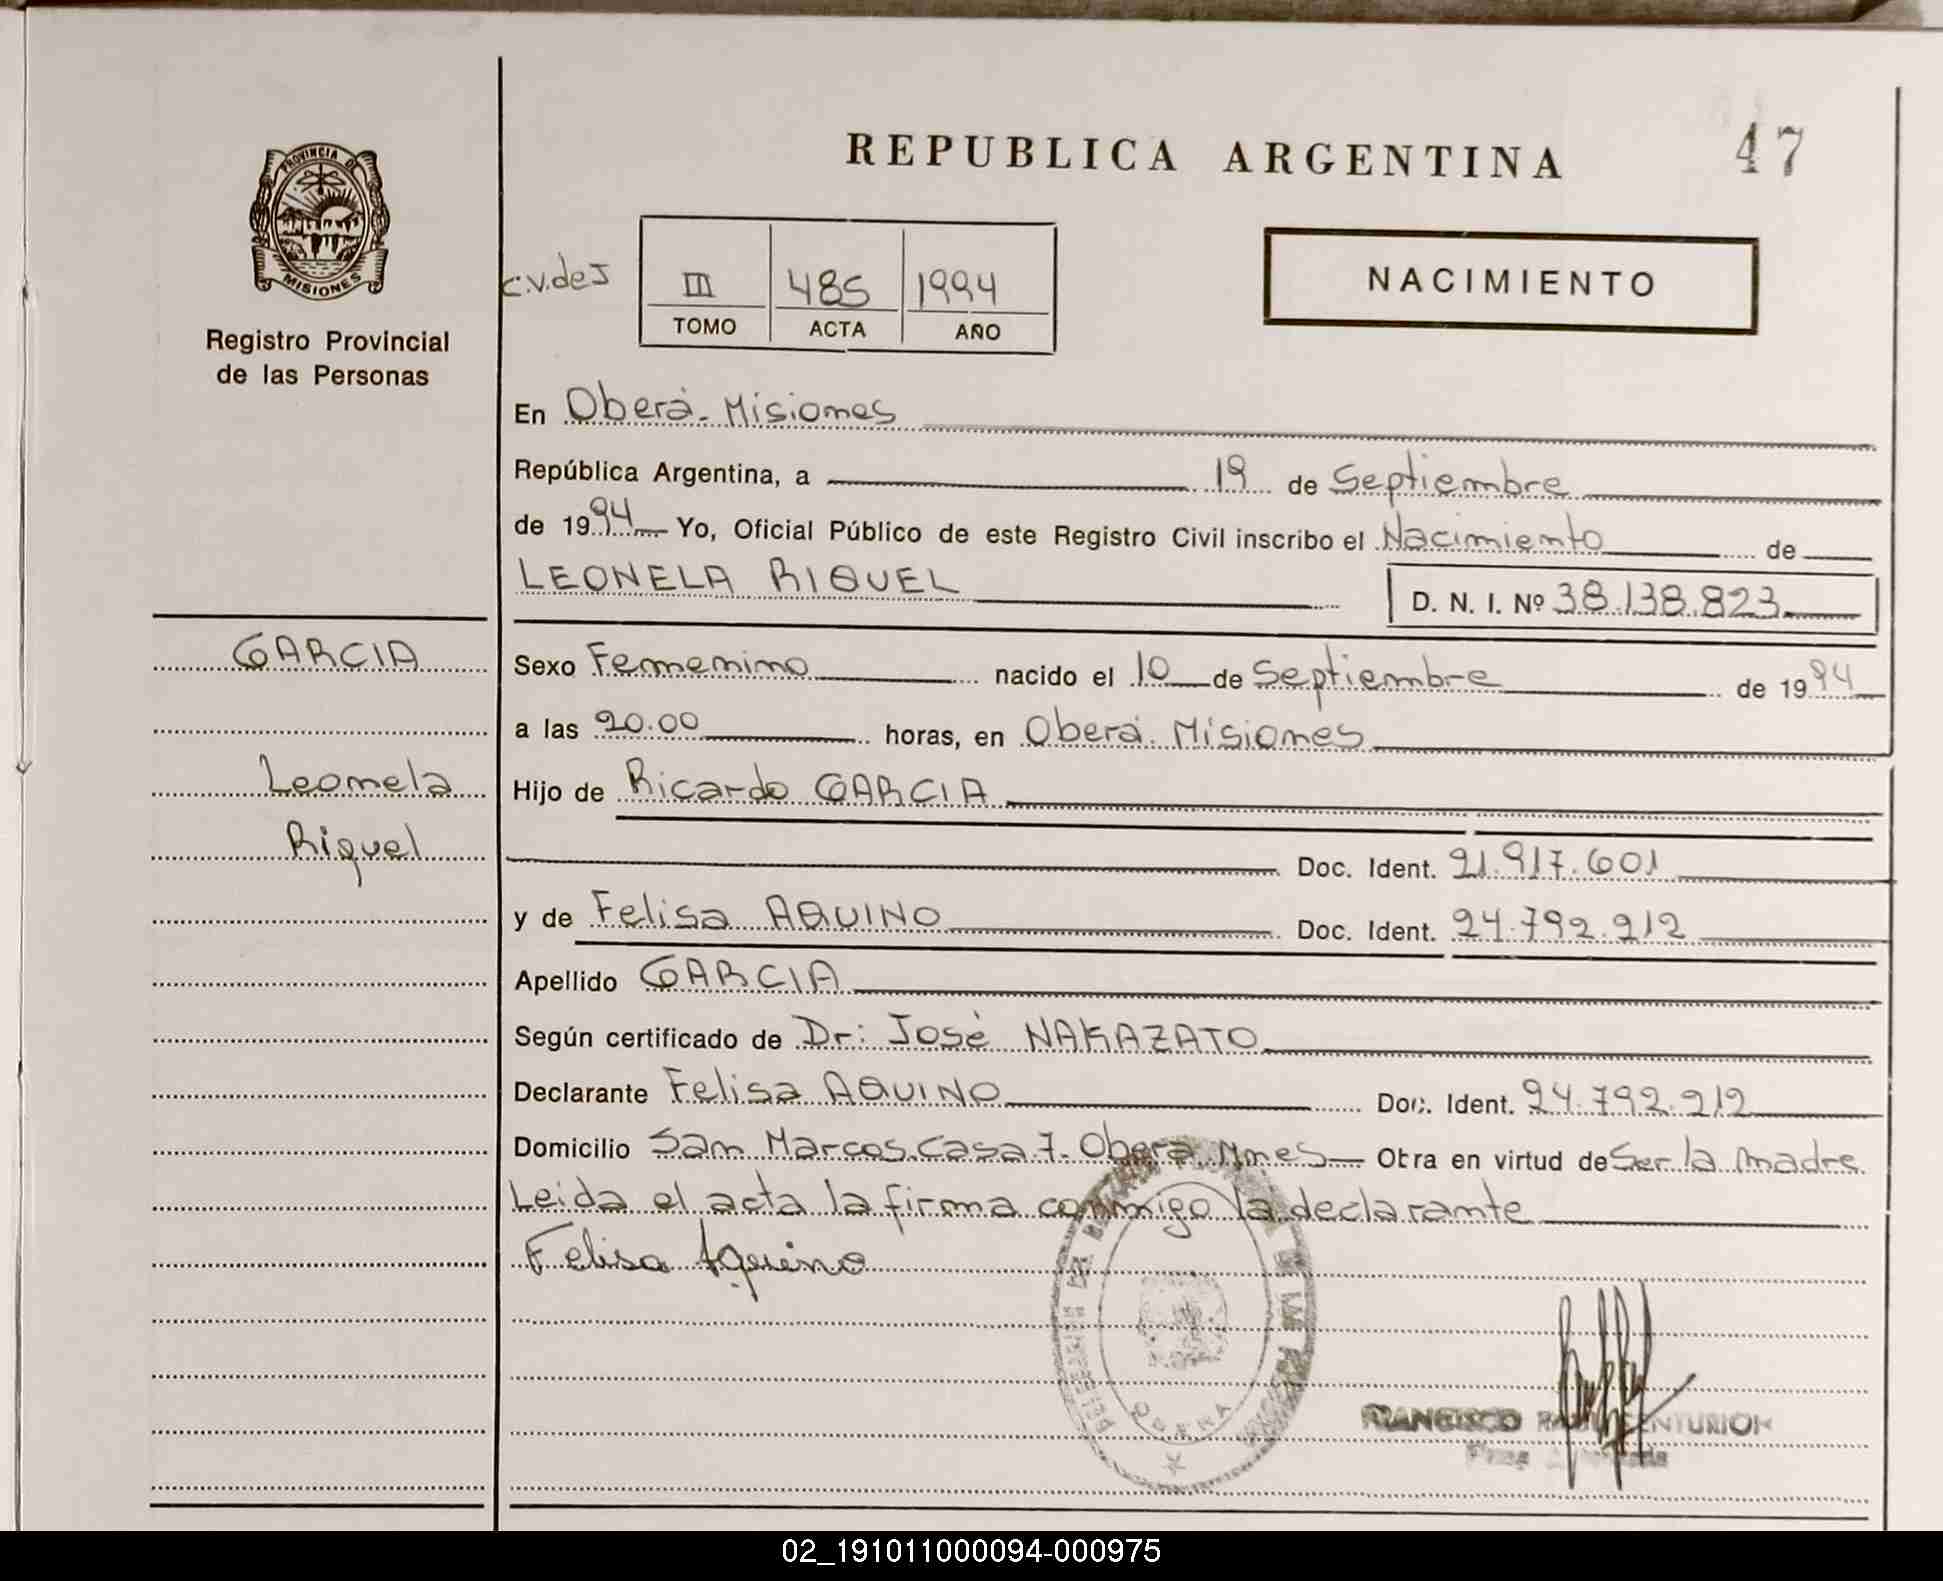 REPUBLICA ARGENTINA
47
PROVINCIA DE
MISIONES
Registro Provincial
de las Personas
c.v.des
III 485 1994
TOMO ACTA AÑO
NACIMIENTO
En Oberá-Misiones
República Argentina, a 19 de Septiembre
de 1994 Yo, Oficial Público de este Registro Civil inscribo el Nacimiento de
LEONELA RIQUEL
D. N. I. Nº 38.138.823
GARCIA
Leonela
Riquel
Sexo Femenino nacido el 10 de Septiembre de 1994
a las 20.00 horas, en Oberá. Misiones
Hijo de Ricardo GARCIA
Doc. Ident. 21.917.601
y de Felisa AQUINO Doc. Ident. 24.792.212
Apellido GARCIA
Según certificado de Dr: José NAKAZATO
Declarante Felisa AQUINO Doc. Ident. 24.792.212
Domicilio San Marcos.Casa 7. Oberá Mnes Obra en virtud de Ser la madre
Leida el acta la firma conmigo la declarante
Felisa Aquino
OBERA
FRANCISCO CENTURION
02_191011000094-000975